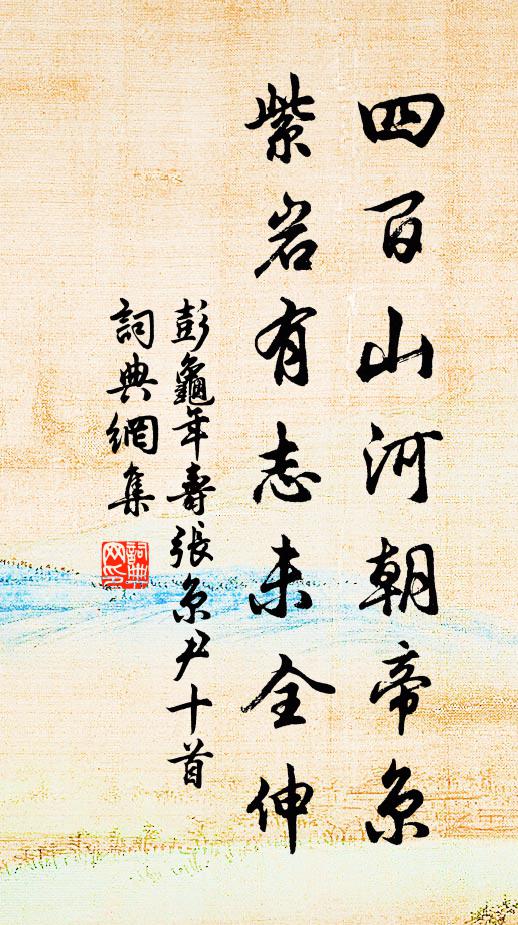 四百山河朝帝京
紫岩有志未全伸
彭龜年壽張京尹十首
詞典網集
詞典
网印